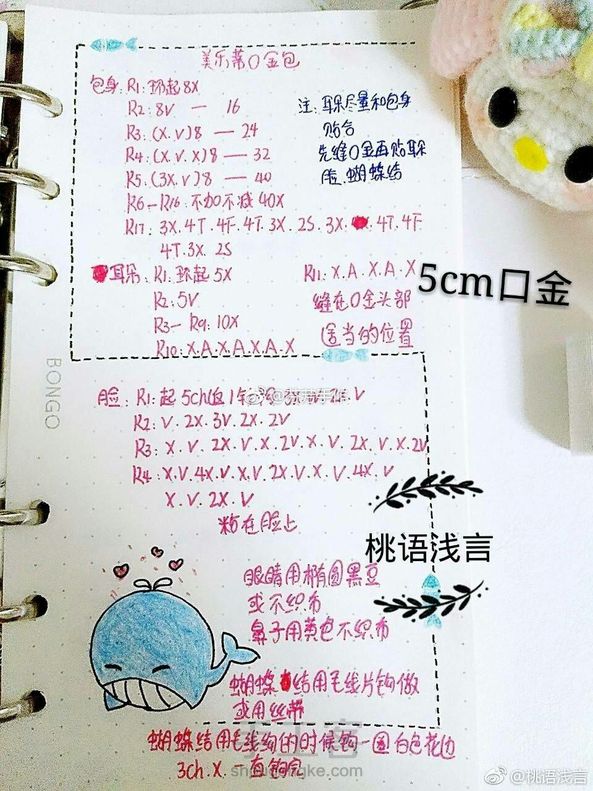 美乐蒂口金包
包身: R1: 环起8X
R2: 8V — 16
R3: (X.V)8 — 24
R4: (X.V.X)8 — 32
R5: (3X.V)8 — 40
R6-R16 不加不减40X
R17: 3X.4T.4F.4T.3X.2S.3X.4T.4F
4T.3X.2S
注: 耳朵尽量和包身
贴合
先缝口金再贴耳朵
脸.蝴蝶结
耳朵: R1: 环起5X
R2: 5V
R3-R9: 10X
R10: X.A.X.A.X.A.X
R11: X.A.X.A.X
缝在口金头部
适当的位置
5cm口金
BONGO
脸: R1: 起5ch
R2: V.2X.3V.2X.2V
R3: X.V.2X.V.X.2V.X.V.2X.V.X.2V
R4: X.V.4X.V.X.V.2X.V.X.V.4X.V
X.V.2X.V
粘在脸上
桃语浅言
眼睛用椭圆黑豆
或不织布
鼻子用黄色不织布
蝴蝶结用毛线片钩做
或用丝带
蝴蝶结用毛线钩的时候钩一圈白色花边
3ch.X.一直钩完
@桃语浅言